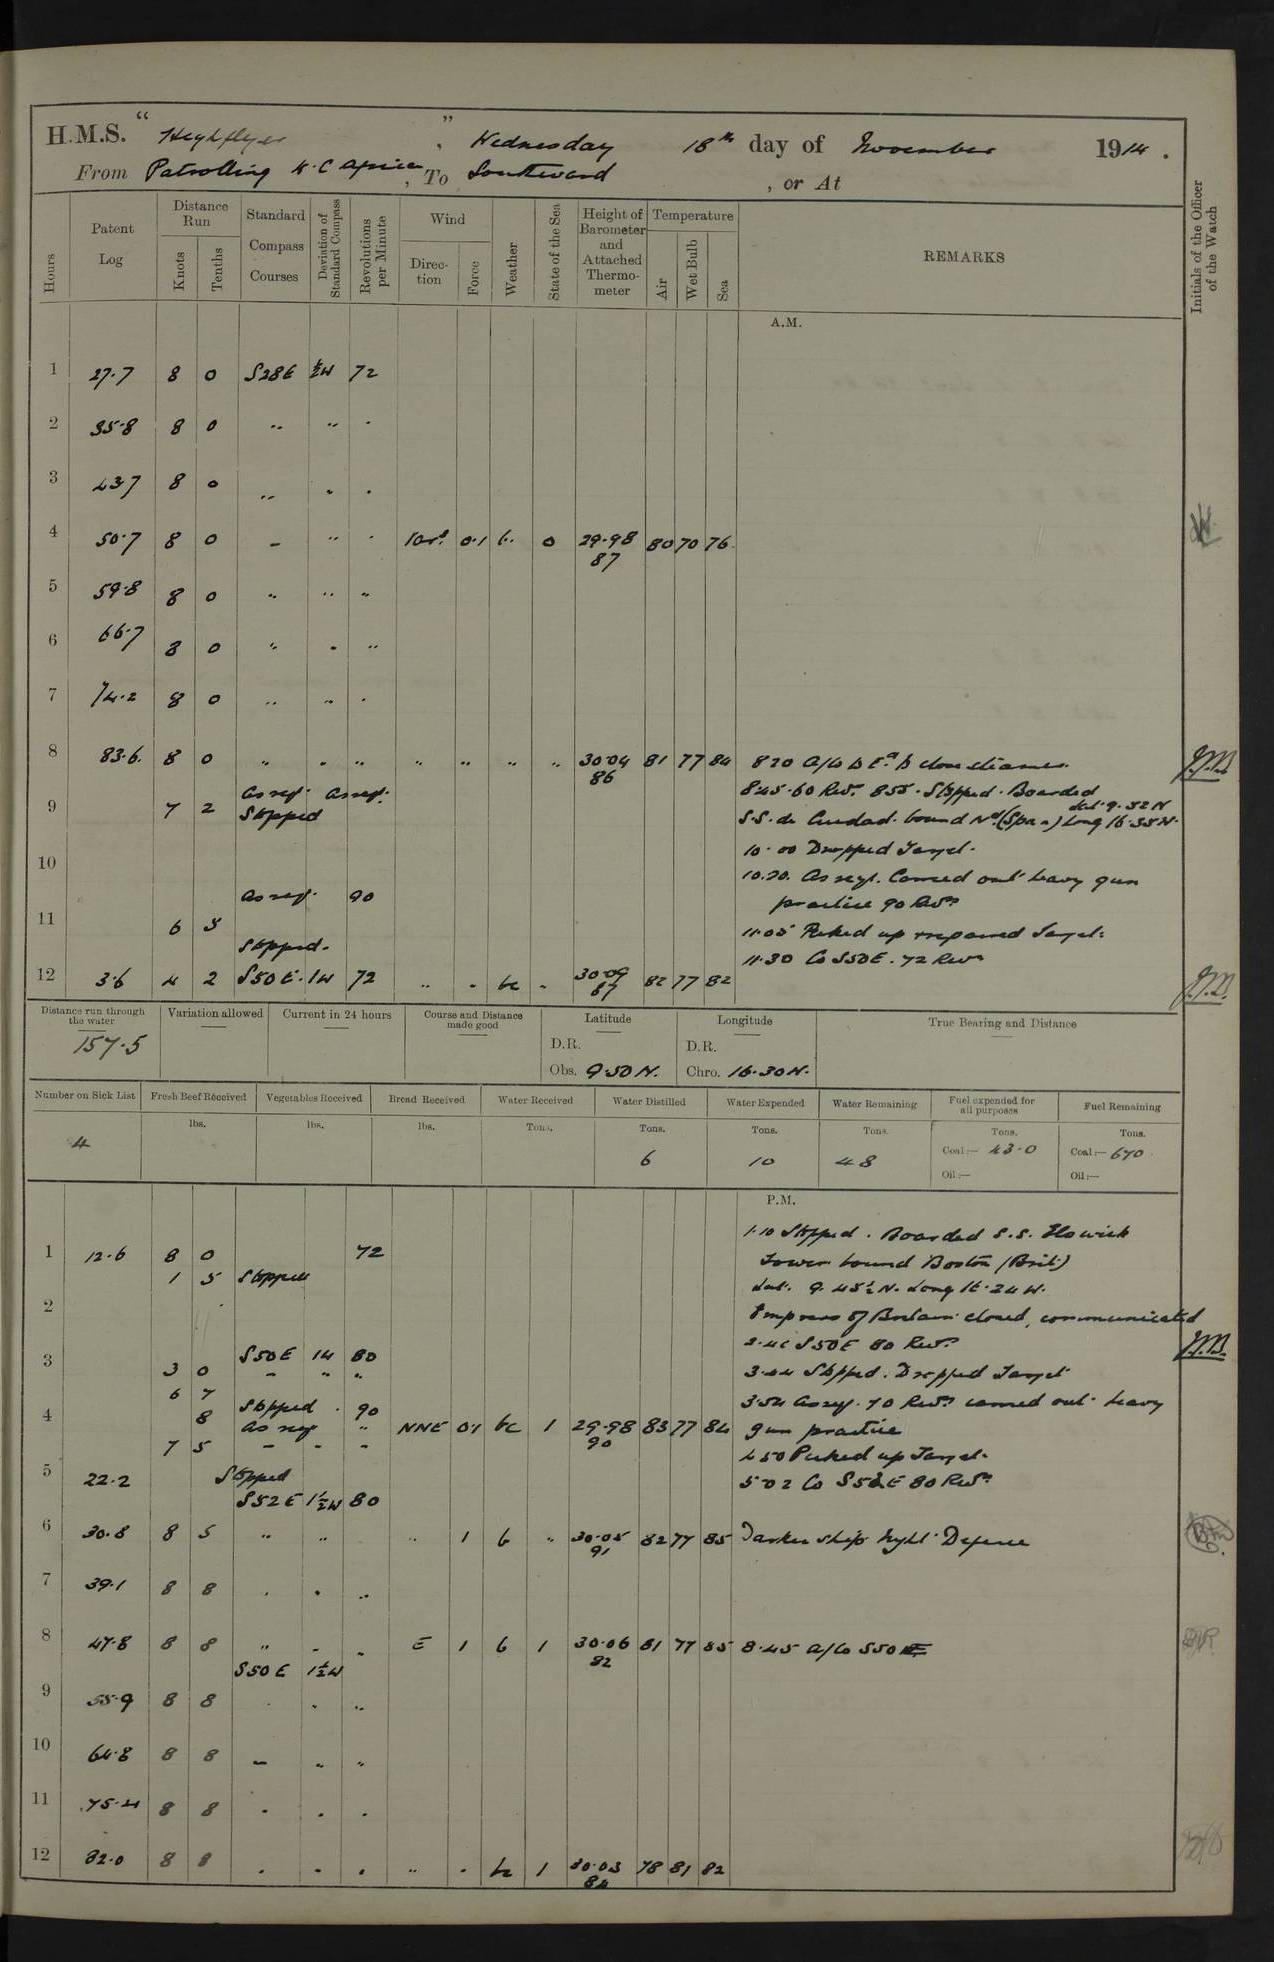 H.M.S. “ Highflyer ” , Wednesday 18th day of November 1914 .
From Patrolling W. C Africa , To Southward , or At
Hours
Patent Log
Distance Run
Knots
Tenths
Standard Compass Courses
Deviation of Standard Compass
Revolutions per Minute
Wind
Direction
Force
Weather
State of the Sea
Height of Barometer and Attached Thermometer
Temperature
Air
Wet Bulb
Sea
REMARKS
Initials of the Officer of the Watch
A.M.
1 27.7 8 0 S28E ½W 72
2 35.8 8 0 " " "
3 43.7 8 0 " " "
4 50.7 8 0 " " " 0.1 b. 0 29.98 80 70 76
87
5 59.8 8 0 " " "
6 66.7 8 0 " " "
7 74.2 8 0 " " "
8 83.6 8 0 " " " " " " " 30.04 81 77 84 820 A/Co to Ed to close steamer
86
as reqt. as reqt. 845. 60 Revs. 855. Stopped. Boarded
9 7 2 Stopped Lat. 9.52 N
S.S. de Ciudad. bound Nd (Span) Long 16.35W.
10.00 Dropped Target.
10
10.20. As reqt. Carried out heavy gun
as reqt. 90 practice 90 Revs
11 6 5 11.05 Picked up & repaired Target.
Stopped. 11.30 Co S50E. 72 Revs
12 3.6 4 2 S50E. 1W 72 " " bc " 30.09 82 77 82
87
Distance run through the water
157.5
Variation allowed
Current in 24 hours
Course and Distance made good
Latitude
D.R.
Obs. 9.50 N.
Longitude
D.R.
Chro. 16.30W.
True Bearing and Distance
Number on Sick List
4
Fresh Beef Received
lbs.
Vegetables Received
lbs.
Bread Received
lbs.
Water Received
Tons.
Water Distilled
Tons.
6
Water Expended
Tons.
10
Water Remaining
Tons.
48
Fuel expended for all purposes
Tons.
Coal:— 43.0
Oil:—
Fuel Remaining
Tons.
Coal:— 670
Oil:—
P.M.
1.10 Stopped. Boarded S.S. Elswick
1 12.6 8 0 72 Tower bound Boston (Brit.)
1 5 Stopped Lat. 9.45½ N. Long 16.24 W.
2 Empress of Britain closed, communicated
S50E 1W 80 S50E 80 Revs.
3 3 0 " " " 3.44 Stopped. Dropped Target
6 7 Stopped 3.54 As reqt. 70 Revs carried out heavy
4 8 as reqt 90 NNE 0.1 bc 1 29.98 83 77 84 gun practice
90
7 5 " " " 4 50 Picked up Target.
5 22.2 Stopped 5 02 Co S52E 80 Revs
S52E 1½W 80
6 30.8 8 5 " " " 1 b " 30.05 82 77 85 Darken ship Night Defence
91
7 39.1 8 8 " " "
8 47.8 8 8 " " " E 1 b 1 30.06 81 77 85 8.45 A/Co S50E
82
S50E 1½W
9 55.9 8 8 " " "
10 64.8 8 8 " " "
11 75.4 8 8 " " "
12 82.0 8 8 " " " " " bc 1 30.03 78 81 82
84